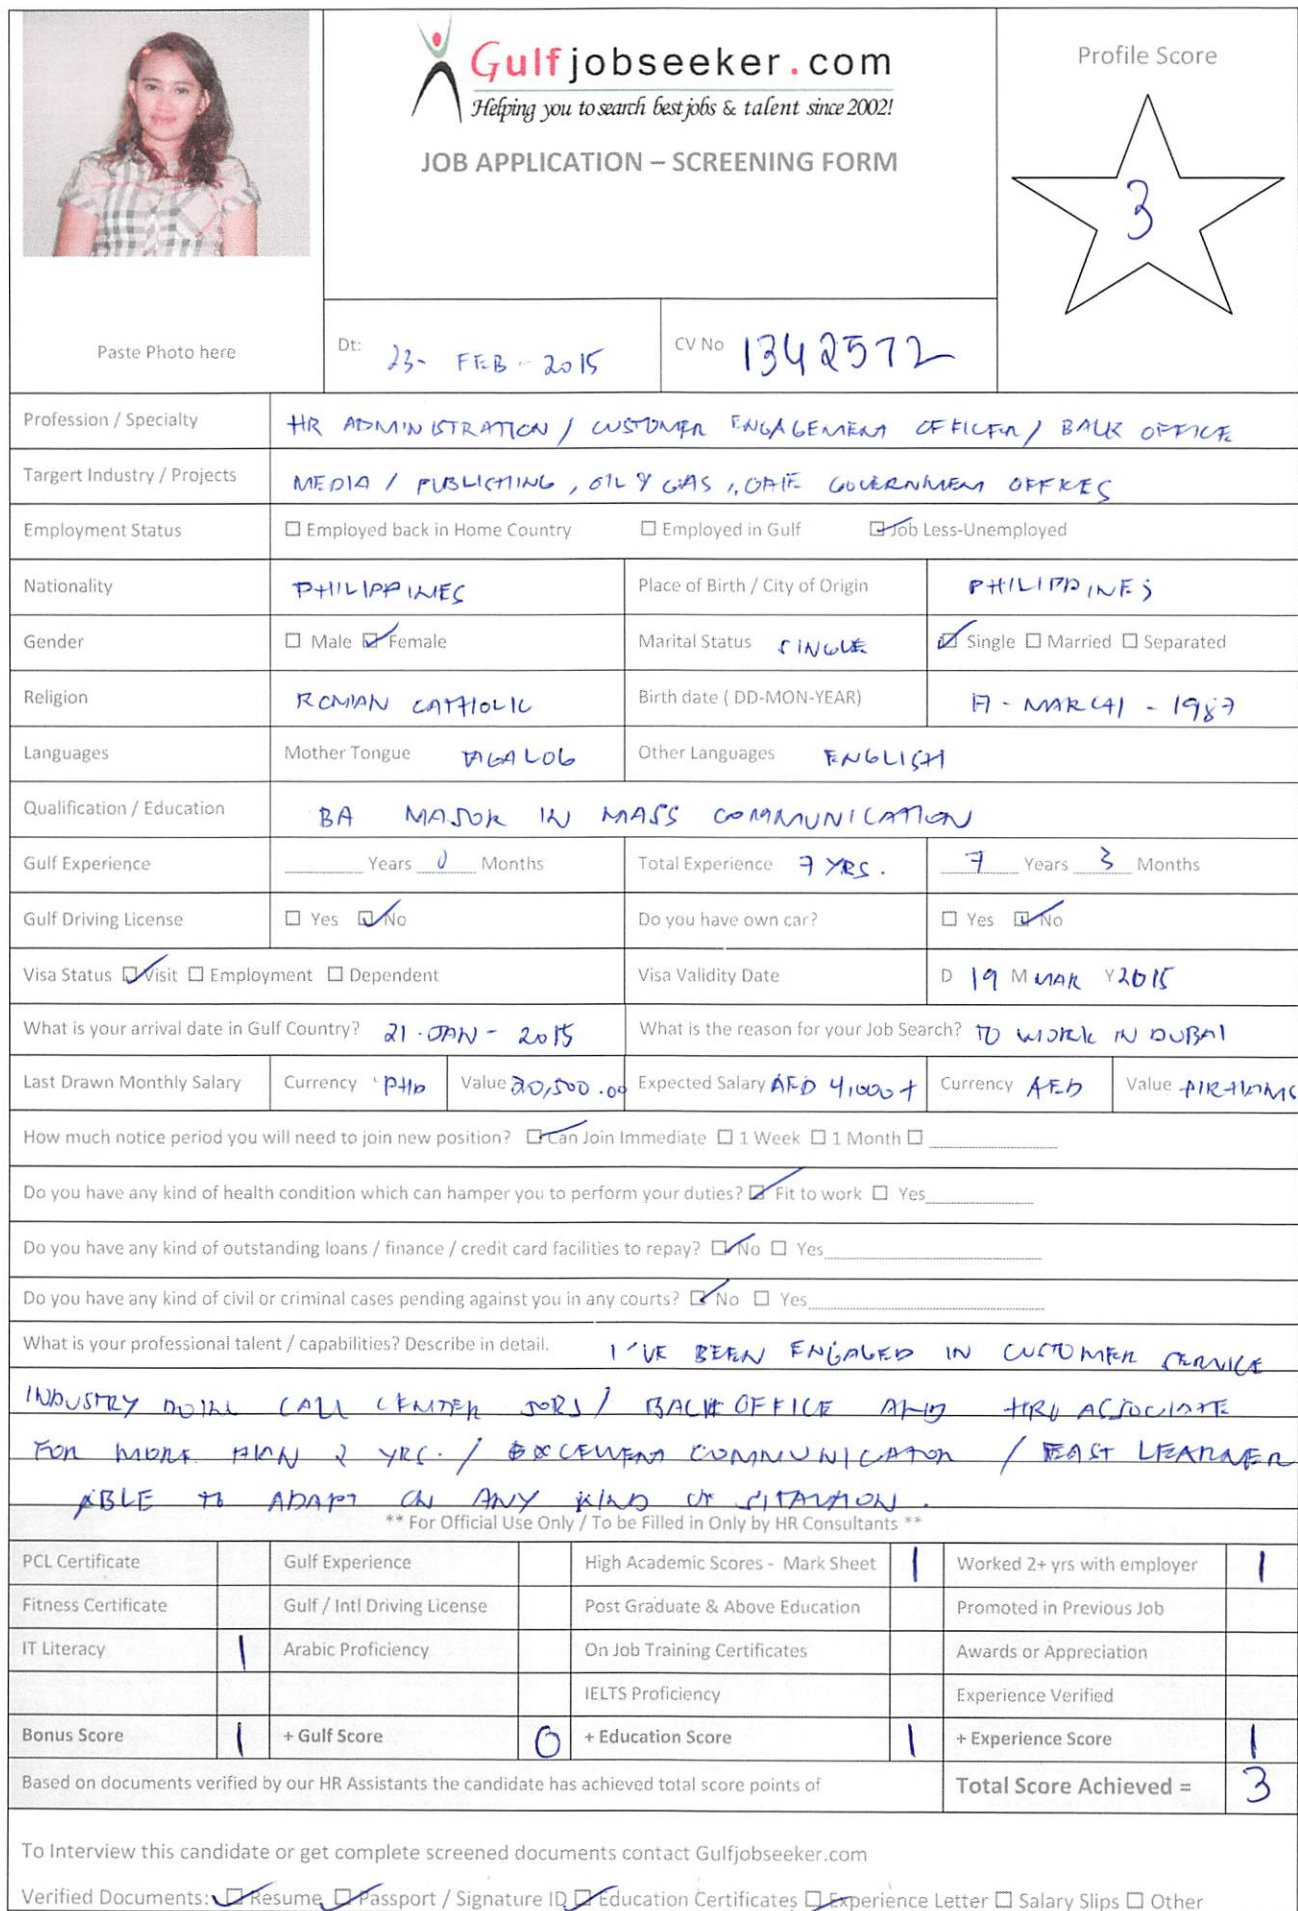 Gulfjobseeker.com
Helping you to search best jobs & talent since 2002!
JOB APPLICATION – SCREENING FORM
Profile Score
3
Paste Photo here
Dt: 23- FEB - 2015
CV No 1342572
Profession / Specialty HR ADMINISTRATION / CUSTOMER ENGAGEMENT OFFICER / BACK OFFICE
Targert Industry / Projects MEDIA / PUBLISHING, OIL & GAS, GOVERNMENT OFFICES
Employment Status ☐ Employed back in Home Country ☐ Employed in Gulf ☑ Job Less-Unemployed
Nationality PHILIPPINES Place of Birth / City of Origin PHILIPPINES
Gender ☐ Male ☑ Female Marital Status SINGLE ☑ Single ☐ Married ☐ Separated
Religion ROMAN CATHOLIC Birth date ( DD-MON-YEAR) 17 - MARCH - 1987
Languages Mother Tongue TAGALOG Other Languages ENGLISH
Qualification / Education BA MAJOR IN MASS COMMUNICATION
Gulf Experience Years 0 Months Total Experience 7 YRS. 7 Years 3 Months
Gulf Driving License ☐ Yes ☑ No Do you have own car? ☐ Yes ☑ No
Visa Status ☑ Visit ☐ Employment ☐ Dependent Visa Validity Date D 19 M MAR Y 2015
What is your arrival date in Gulf Country? 21 - JAN - 2015 What is the reason for your Job Search? TO WORK IN DUBAI
Last Drawn Monthly Salary Currency PHP Value 20,500.00 Expected Salary AED 4,000 + Currency AED Value DIRHAMS
How much notice period you will need to join new position? ☑ Can Join Immediate ☐ 1 Week ☐ 1 Month ☐
Do you have any kind of health condition which can hamper you to perform your duties? ☑ Fit to work ☐ Yes
Do you have any kind of outstanding loans / finance / credit card facilities to repay? ☑ No ☐ Yes
Do you have any kind of civil or criminal cases pending against you in any courts? ☑ No ☐ Yes
What is your professional talent / capabilities? Describe in detail. I'VE BEEN ENGAGED IN CUSTOMER SERVICE
INDUSTRY DOING CALL CENTER JOBS / BACK OFFICE AND HR ASSOCIATE
FOR MORE THAN 2 YRS. / EXCELLENT COMMUNICATOR / FAST LEARNER
ABLE TO ADAPT ON ANY KIND OF SITATUION.
** For Official Use Only / To be Filled in Only by HR Consultants **
PCL Certificate Gulf Experience High Academic Scores - Mark Sheet 1 Worked 2+ yrs with employer 1
Fitness Certificate Gulf / Intl Driving License Post Graduate & Above Education Promoted in Previous Job
IT Literacy 1 Arabic Proficiency On Job Training Certificates Awards or Appreciation
IELTS Proficiency Experience Verified
Bonus Score 1 + Gulf Score 0 + Education Score 1 + Experience Score 1
Based on documents verified by our HR Assistants the candidate has achieved total score points of Total Score Achieved = 3
To Interview this candidate or get complete screened documents contact Gulfjobseeker.com
Verified Documents: ☑ Resume ☑ Passport / Signature ID ☑ Education Certificates ☑ Experience Letter ☐ Salary Slips ☐ Other